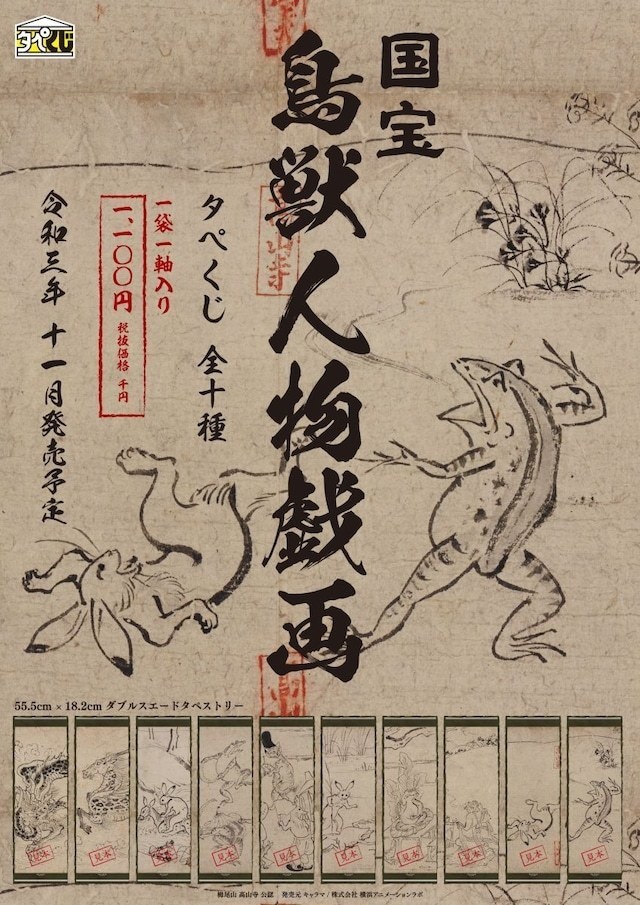 タペくじ
国宝
鳥獣人物戯画
タペくじ 全十種
一袋一軸入り
一、一〇〇円 税抜価格 千円
令和三年 十一月発売予定
55.5cm × 18.2cm ダブルスエードタペストリー
見本
見本
見本
見本
見本
見本
見本
見本
見本
見本
栂尾山 高山寺 公認 発売元 キャラマ / 株式会社 横浜アニメーションラボ